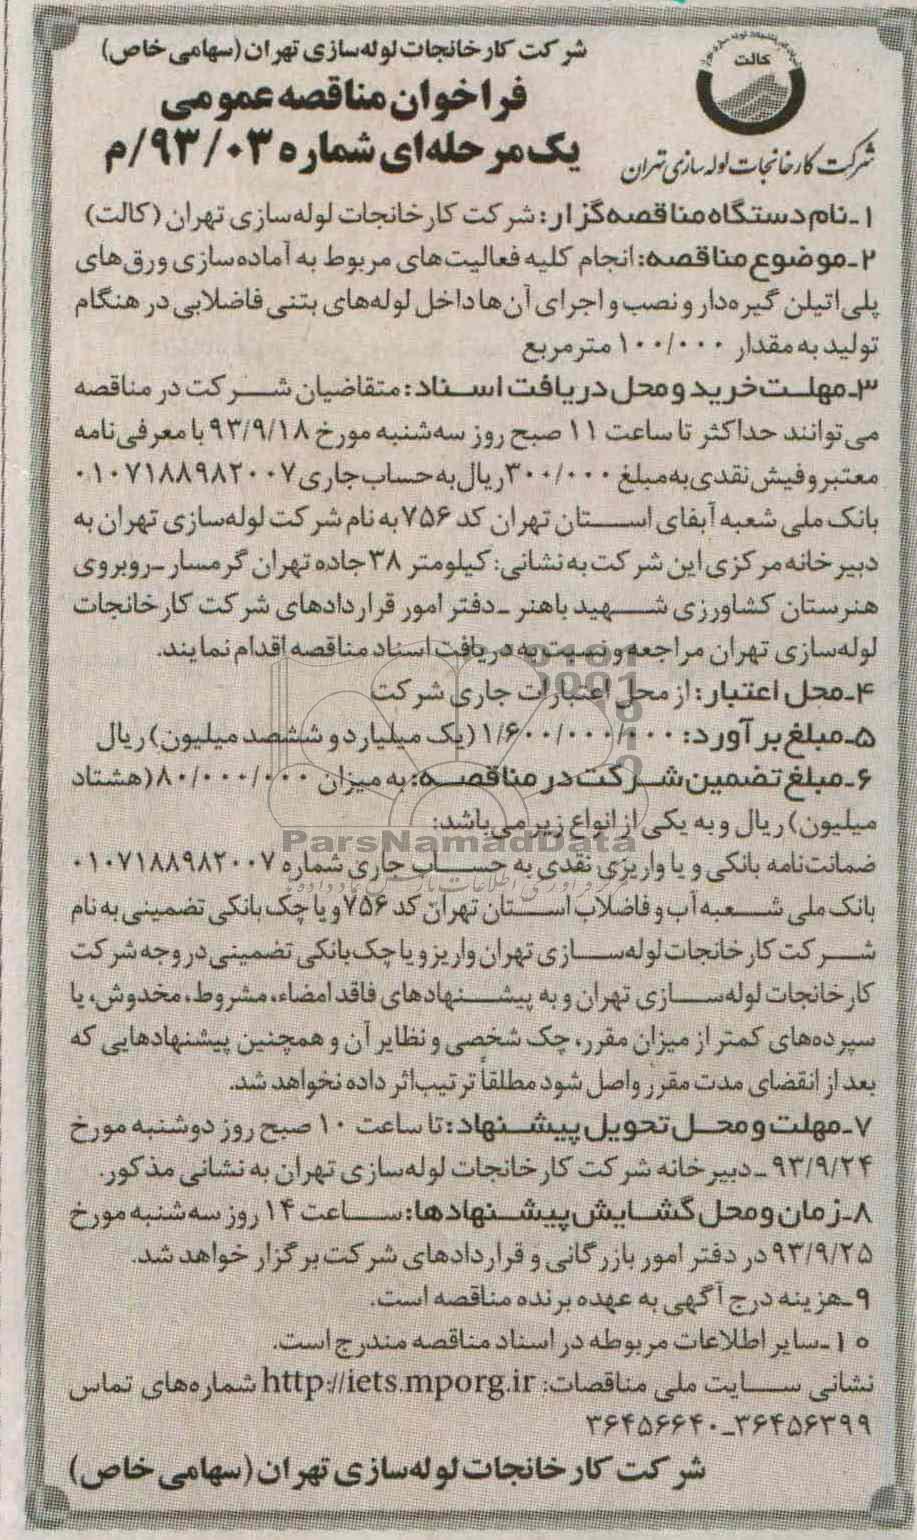 شرکت کارخانجات لوله‌سازی تهران (سهامی خاص)
فراخوان مناقصه عمومی
یک مرحله‌ای شماره ۹۳/۰۳/م
کالت
شرکت کارخانجات لوله سازی تهران
۱ـ نام دستگاه مناقصه‌گزار: شرکت کارخانجات لوله‌سازی تهران (کالت)
۲ـ موضوع مناقصه: انجام کلیه فعالیت‌های مربوط به آماده‌سازی ورق‌های
پلی‌اتیلن گیره‌دار و نصب و اجرای آن‌ها داخل لوله‌های بتنی فاضلابی در هنگام
تولید به مقدار ۱۰۰/۰۰۰ مترمربع
۳ـ مهلت خرید و محل دریافت اسناد: متقاضیان شرکت در مناقصه
می‌توانند حداکثر تا ساعت ۱۱ صبح روز سه‌شنبه مورخ ۹۳/۹/۱۸ با معرفی‌نامه
معتبر و فیش نقدی به مبلغ ۳۰۰/۰۰۰ ریال به حساب جاری ۰۱۰۷۱۸۸۹۸۲۰۰۷
بانک ملی شعبه آبفای استان تهران کد ۷۵۶ به نام شرکت لوله‌سازی تهران به
دبیرخانه مرکزی این شرکت به نشانی: کیلومتر ۳۸ جاده تهران گرمسار ـ روبروی
هنرستان کشاورزی شهید باهنر ـ دفتر امور قراردادهای شرکت کارخانجات
لوله‌سازی تهران مراجعه و نسبت به دریافت اسناد مناقصه اقدام نمایند.
۴ـ محل اعتبار: از محل اعتبارات جاری شرکت
۵ـ مبلغ برآورد: ۱/۶۰۰/۰۰۰/۰۰۰ (یک میلیارد و ششصد میلیون) ریال
۶ـ مبلغ تضمین شرکت در مناقصه: به میزان ۸۰/۰۰۰/۰۰۰ (هشتاد
میلیون) ریال و به یکی از انواع زیر می‌باشد:
ParsNamadData
ضمانت‌نامه بانکی و یا واریزی نقدی به حساب جاری شماره ۰۱۰۷۱۸۸۹۸۲۰۰۷
بانک ملی شعبه آب و فاضلاب استان تهران کد ۷۵۶ و یا چک بانکی تضمینی به نام
شرکت کارخانجات لوله‌سازی تهران واریز و یا چک بانکی تضمینی در وجه شرکت
کارخانجات لوله‌سازی تهران و به پیشنهادهای فاقد امضاء، مشروط، مخدوش، یا
سپرده‌های کمتر از میزان مقرر، چک شخصی و نظایر آن و همچنین پیشنهادهایی که
بعد از انقضای مدت مقرر واصل شود مطلقاً ترتیب‌اثر داده نخواهد شد.
۷ـ مهلت و محل تحویل پیشنهاد: تا ساعت ۱۰ صبح روز دوشنبه مورخ
۹۳/۹/۲۴ ـ دبیرخانه شرکت کارخانجات لوله‌سازی تهران به نشانی مذکور.
۸ـ زمان و محل گشایش پیشنهادها: ساعت ۱۴ روز سه‌شنبه مورخ
۹۳/۹/۲۵ در دفتر امور بازرگانی و قراردادهای شرکت برگزار خواهد شد.
۹ـ هزینه درج آگهی به عهده برنده مناقصه است.
۱۰ـ سایر اطلاعات مربوطه در اسناد مناقصه مندرج است.
نشانی سایت ملی مناقصات: http://iets.mporg.ir شماره‌های تماس
۳۶۴۵۶۳۹۹ـ۳۶۴۵۶۶۴۰
شرکت کارخانجات لوله‌سازی تهران (سهامی خاص)